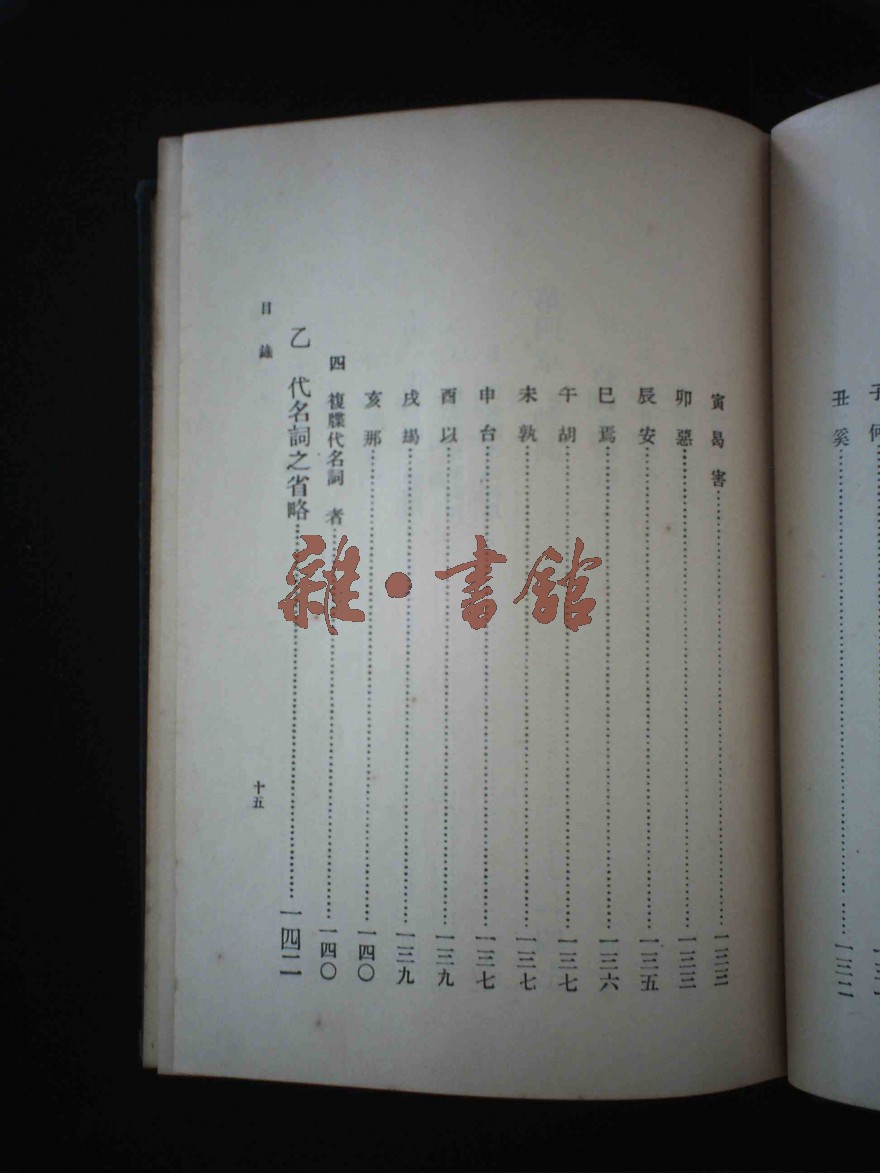 丑 奚……一三二
寅 曷 害……一三三
卯 惡……一三三
辰 安……一三五
巳 焉……一三六
午 胡……一三七
未 孰……一三七
申 台……一三七
酉 以……一三九
戌……一三九
亥 那……一四〇
四 複牒代名詞 者……一四〇
乙 代名詞之省略……一四二
目錄
十五
雜·書館